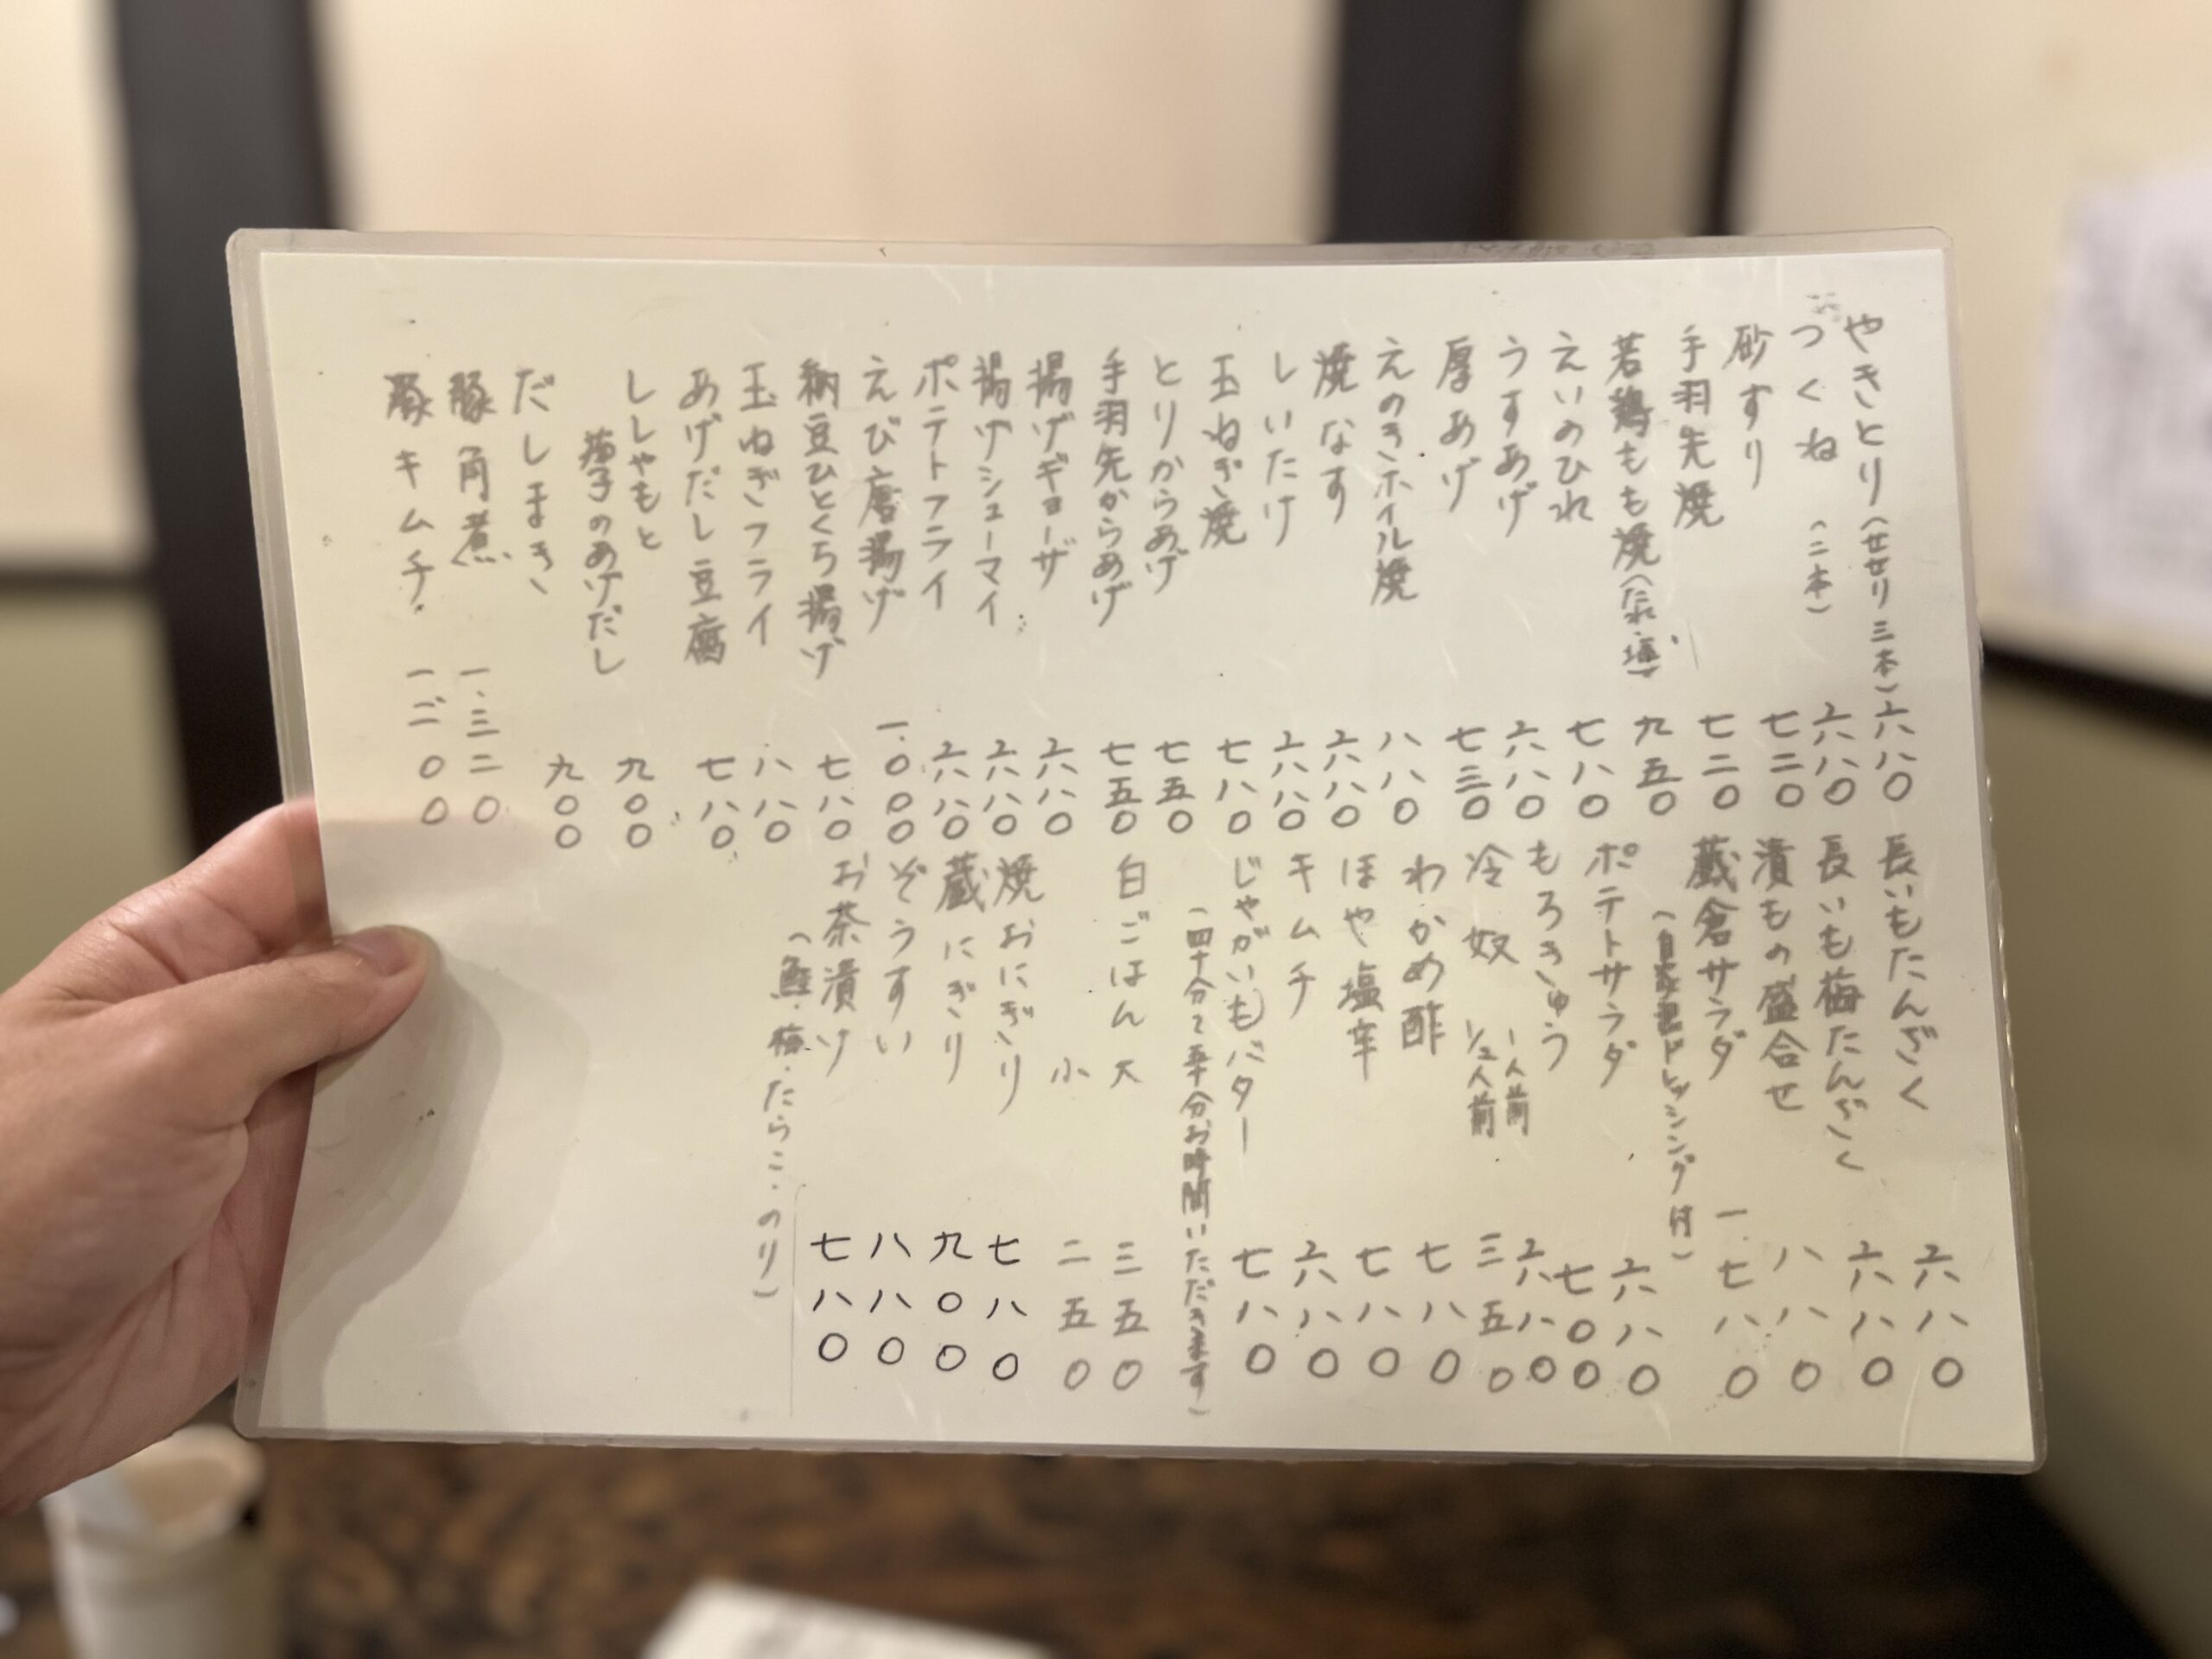 やきとり（せせり三本）六八〇
つくね（二本）六八〇
砂ずり 七二〇
手羽先焼 七二〇
若鶏もも焼（たれ・塩）九五〇
えいのひれ 七八〇
うすあげ 六八〇
厚あげ 七三〇
えのきホイル焼 八八〇
焼なす 六八〇
しいたけ 六八〇
玉ねぎ焼 七八〇
とりからあげ 七五〇
手羽先からあげ 七五〇
揚げギョーザ 六八〇
揚げシューマイ 六八〇
ポテトフライ 六八〇
えび唐揚げ 一.〇〇〇
納豆ひとくち揚げ 七八〇
玉ねぎフライ 八八〇
あげだし豆腐 七八〇
ししゃもと
茄子のあげだし 九〇〇
だしまき 九〇〇
豚角煮 一.三二〇
豚キムチ 一.二〇〇
長いもたんざく 六八〇
長いも梅たんざく 六八〇
漬もの盛合せ 八八〇
蔵倉サラダ 一.七八〇
（自家製ドレッシング付）
ポテトサラダ 六八〇
もろきゅう 七〇〇
冷奴 一人前 六八〇
1/2人前 三五〇
わかめ酢 七八〇
ほや塩辛 七八〇
キムチ 六八〇
じゃがいもバター 七八〇
（四十分〜五十分お時間いただきます）
白ごはん 大 三五〇
小 二五〇
焼おにぎり 七八〇
蔵にぎり 九〇〇
ぞうすい 八八〇
お茶漬け 七八〇
（鮭・梅・たらこ・のり）